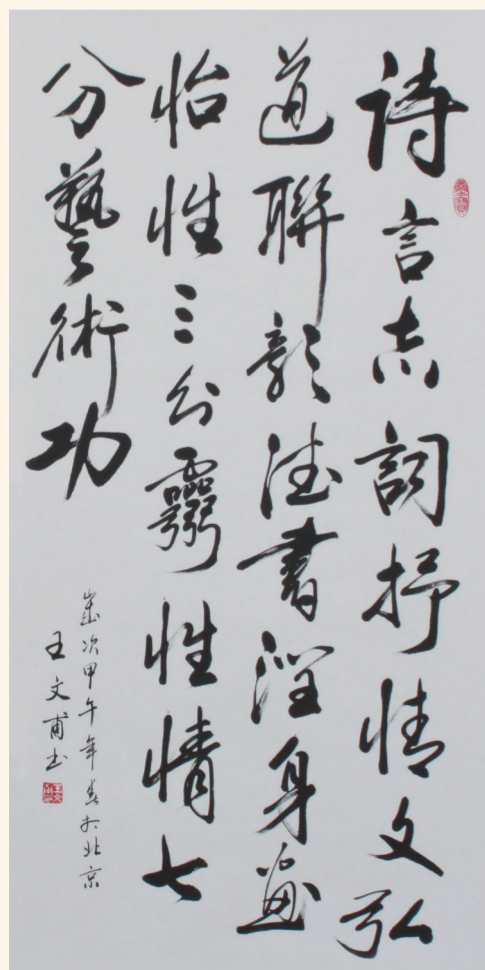 詩言志詞抒情文弘
道聯彰德書潤身畫
怡性三分靈性情七
分藝術功
歲次甲午年春於北京
王文甫书